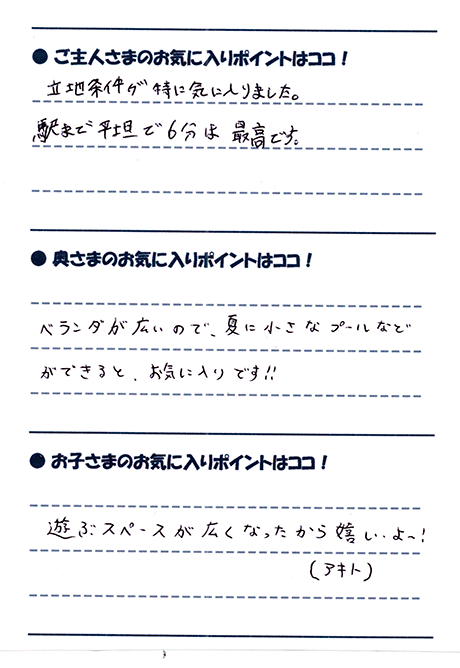 ● ご主人さまのお気に入りポイントはココ！
立地条件が特に気に入りました。
駅まで平坦で6分は最高です。
● 奥さまのお気に入りポイントはココ！
ベランダが広いので、夏に小さなプールなど
ができると、お気に入りです!!
● お子さまのお気に入りポイントはココ！
遊ぶスペースが広くなったから嬉しいよー！
(アキト)